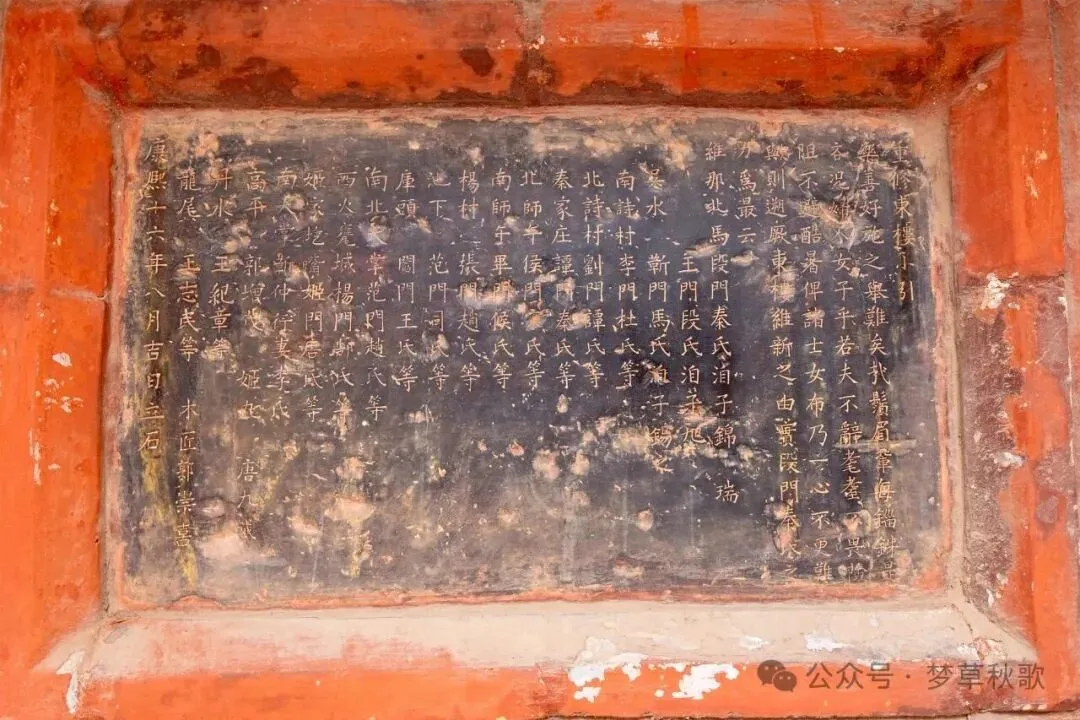 重修東樓小引
樂善好施之舉難矣哉鬚眉輩每錙銖是
吝況婦人女子乎若夫不辭耄耋不畏險
阻不避酷暑俾諸士女布乃一心不更難
與則遡厥東樓維新之由實段門秦氏之
力爲最云
維那北馬段門秦氏洎子錦 瑞
王門段氏洎子旭
吳水 靳門馬氏洎子錫
南詩村李門杜氏等
北詩村劉門譚氏等
秦家庄譚門秦氏等
北師午侯門 氏等
南師午畢門候氏等
楊村 張門趙氏等
池下 范門司氏等
庫頭 閻門王氏等
南北 掌范門趙氏等
西火 城楊門鄒氏等
姬家圪 姬門唐氏等
南 掌 仲 妻李氏
高平 郭增 姬 唐九
丹水 王紀章等
龍尾 王志民等 木匠郭崇喜
康熙十六年八月吉日立石